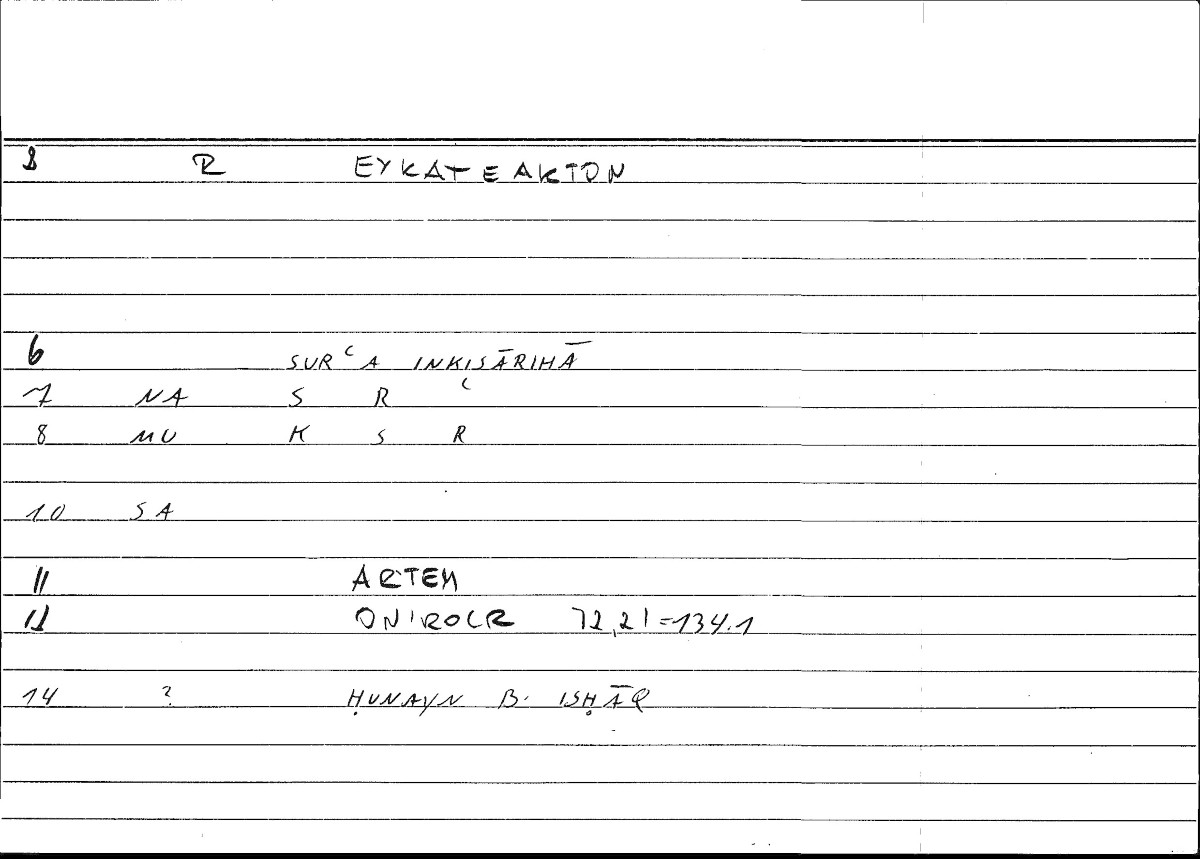 8 R EYKATEAKTON
6 SURʿA INKISĀRIHĀ
7 NA S R ʿ
8 MU K S R
10 SA
11 ARTEM
12 ONIROCR 72,21=134.1
14 ? ḤUNAYN B. ISḤĀQ